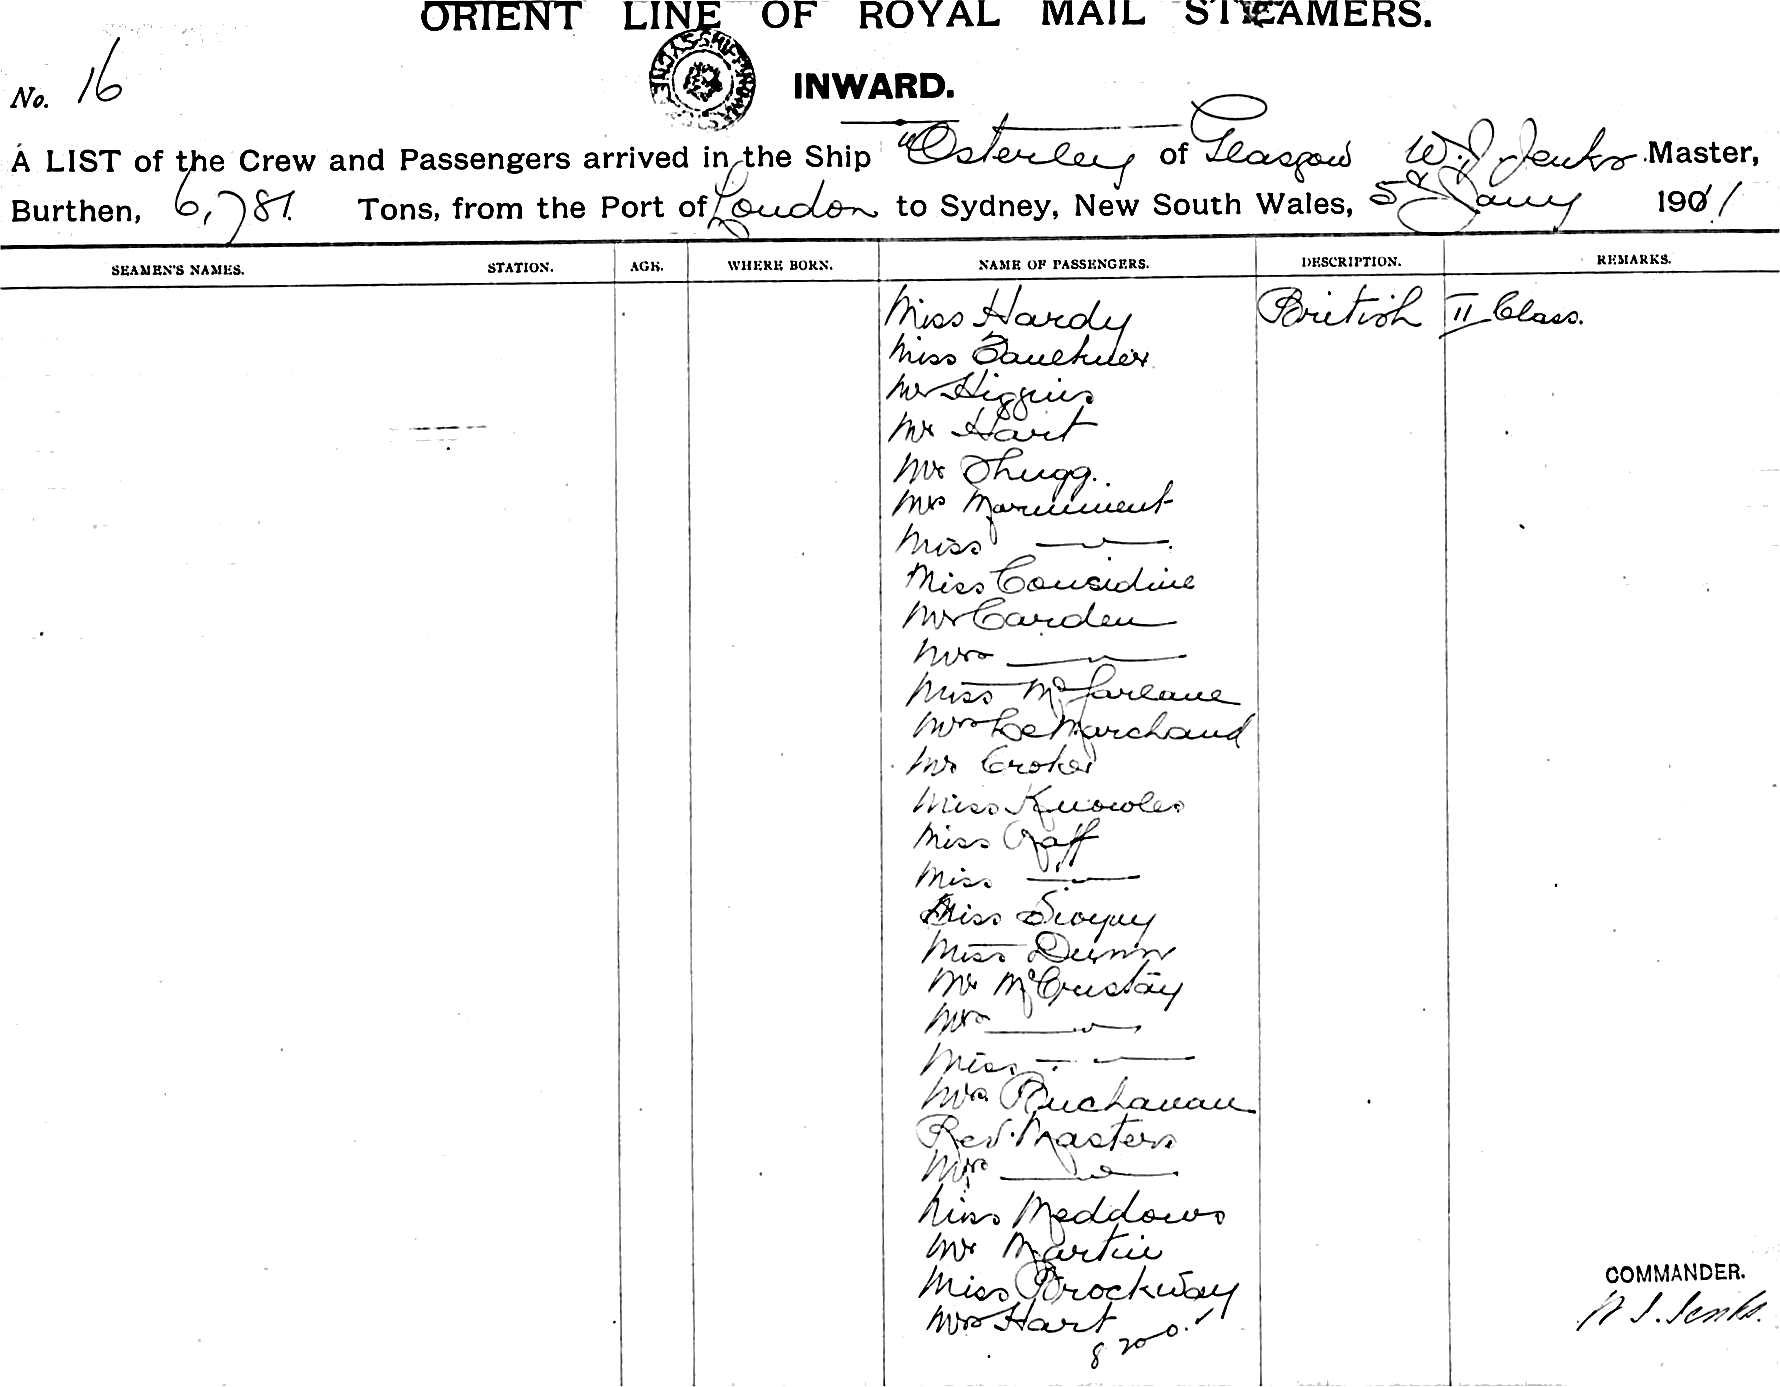 ORIENT LINE OF ROYAL MAIL STEAMERS.
No. 16
INWARD.
A LIST of the Crew and Passengers arrived in the Ship "Osterley of Glasgow W. J Jenks Master,
Burthen, 6,781. Tons, from the Port of London to Sydney, New South Wales, 5th Jany 1901/
SEAMEN'S NAMES. STATION. AGE. WHERE BORN. NAME OF PASSENGERS. DESCRIPTION. REMARKS.
Miss Hardy British II Class.
Miss Faulkner
Mr Higgins
Mr Hart
Mr Thugg.
Mrs Marument
Miss —"—
Miss Considine
Mr Carden
Mrs —"—
Miss McFarlane
Mrs Le Marchand
Mr Croker
Miss Knowles
Miss Graff
Miss —"—
Miss
Miss Dunn
Mr
Mrs —"—
Miss —"—
Mrs Buchanan
Rev. Masters
Mrs —"—
Miss Meddows
Mr Martin
Miss Brockway
Mrs Hart
COMMANDER.
W J. Jenks.